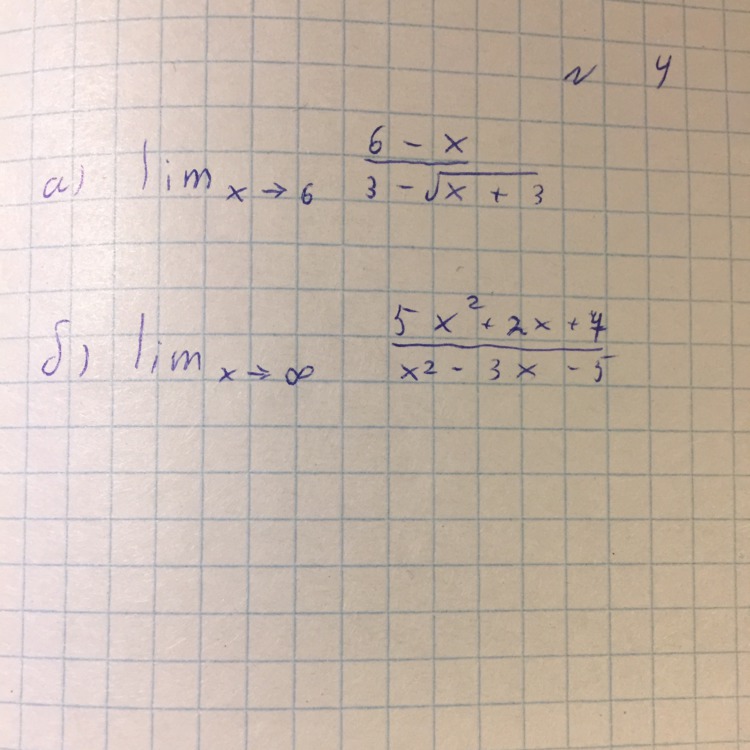 № 4
а) lim x→6 (6 - x) / (3 - √(x + 3))
б) lim x→∞ (5x² + 2x + 7) / (x² - 3x - 5)